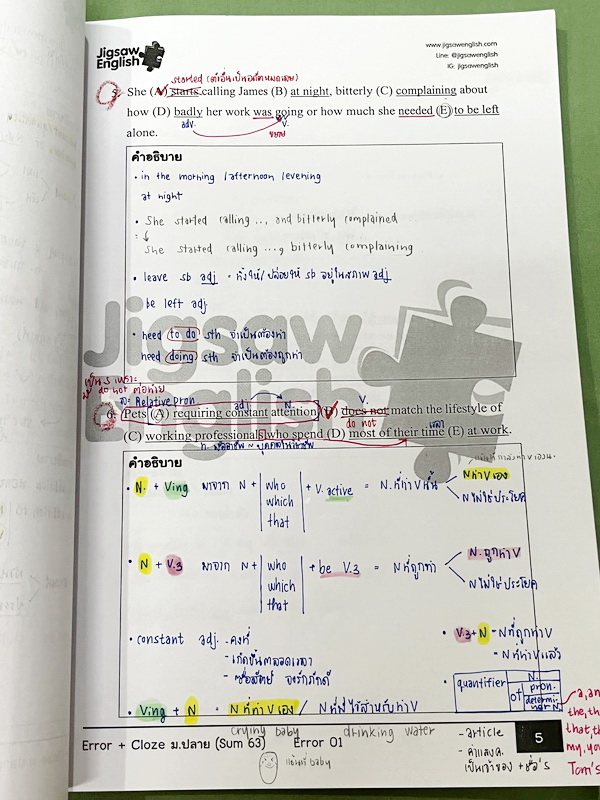 Jigsaw
English
www.jigsawenglish.com
Line: @jigsawenglish
IG: jigsawenglish
started
She (A) starts calling James (B) at night, bitterly (C) complaining about
how (D) badly her work was going or how much she needed (E) to be left
adv. V.
ขยาย
alone.
คำอธิบาย
• in the morning / afternoon / evening
at night
• She started calling ..., and bitterly complained
She started calling ..., bitterly complaining
• leave sb adj = ทิ้งให้/ปล่อยให้ sb อยู่ในสภาพ adj
be left adj.
• need to do sth จำเป็นต้องทำ
need doing sth จำเป็นต้องถูกทำ
Jigsaw
English
Relative pron.
adj N. V.
6. Pets (A) requiring constant attention (B) does not match the lifestyle of
do not
(C) working professionals who spend (D) most of their time (E) at work.
คำอธิบาย
• N. + Ving มาจาก N + who which that + V. active = N.ที่ทำ V นั้น
N ทำ V เอง
N ไม่ใช่ประโยค
• N + V.3 มาจาก N + who which that + be V.3 = N ที่ถูกทำ
N.ถูกทำ V
N ไม่ใช่ประโยค
• constant adj. - คงที่
- เกิดขึ้นตลอดเวลา
- ซื่อสัตย์ จงรักภักดี
• V.3 + N - N ที่ถูกทำ V
- N ที่ทำ V แล้ว
• quantifier of N. pron. determiner N.
• Ving + N = N ที่ทำ V เอง / N ที่มีไว้สำหรับทำ V
crying baby drinking water
- article
เป็นเจ้าของ + ชื่อ's
Tom's
Error + Cloze ม.ปลาย (Sum 63) Error 01
5